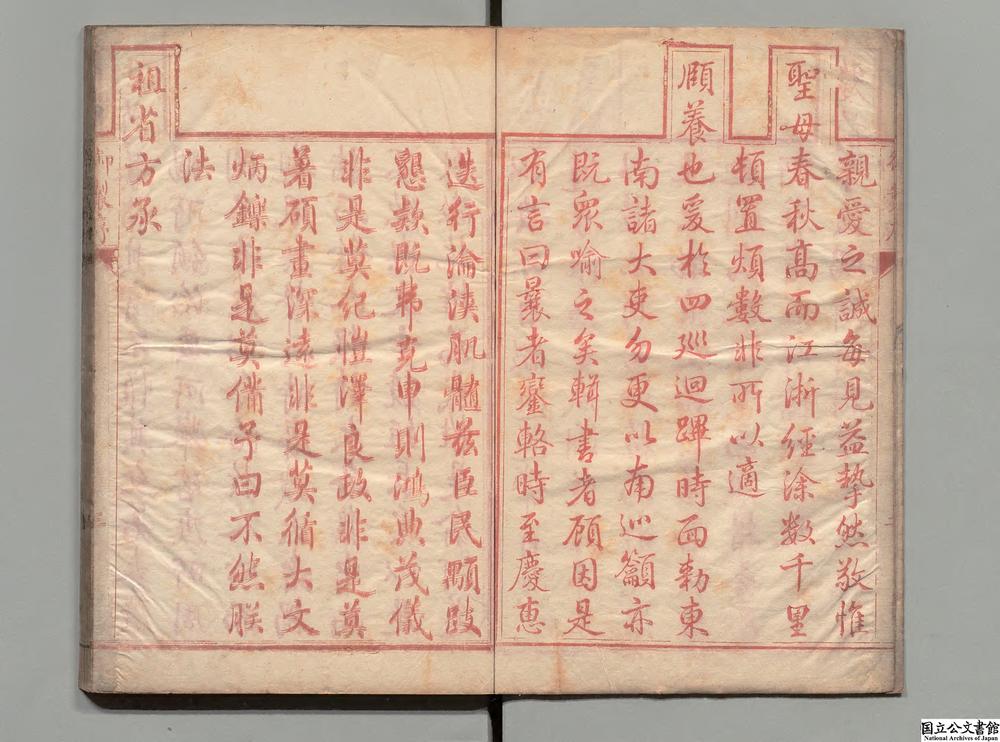 親愛之誠每見益摯然敬惟
聖母春秋高而江浙經涂数千里
頓置煩數非所以適
頤養也爰於四巡迴蹕時面勅東
南諸大吏勿更以南巡籲亦
既衆喻之矣輯書者顧因是
有言曰曩者鑾輅時至慶惠
迭行淪浹肌髓茲臣民顒跂
懇款既弗克申則鴻典茂儀
非是莫紀愷澤良政非是莫
著碩畫深遠非是莫循大文
炳鑠非是莫備予曰不然朕
法
祖省方承
国立公文書館
National Archives of Japan